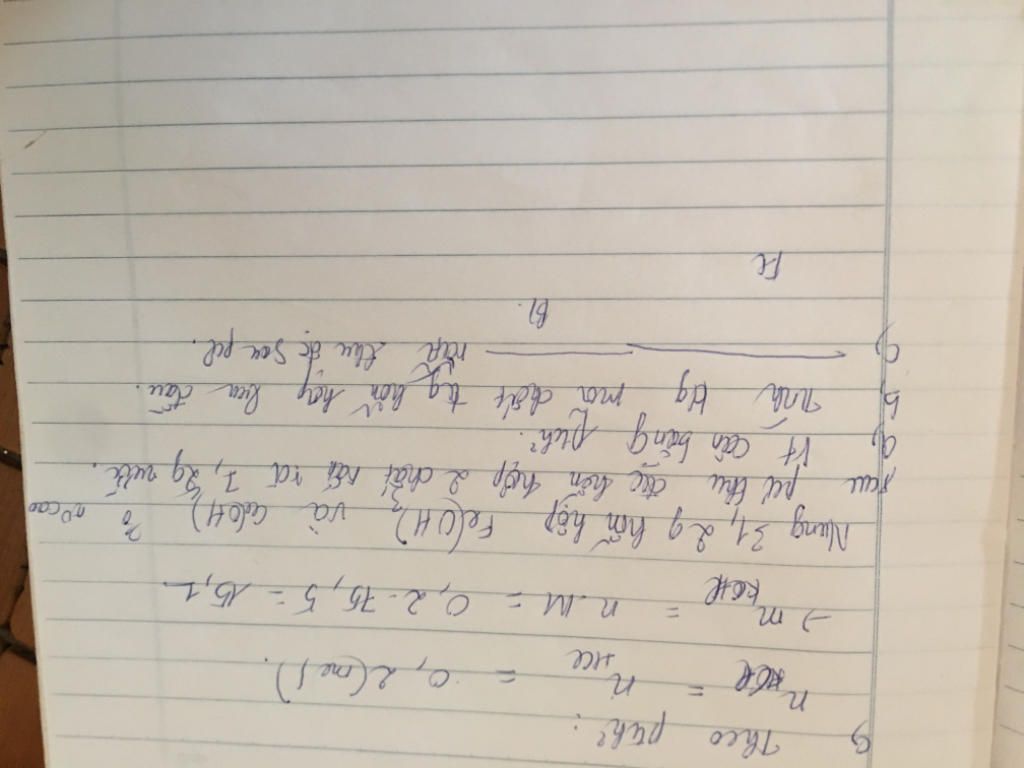 Theo ptrh2:
nKCl = nHCl = 0,2 (mol).
→ mKCl = n.M = 0,2 . 75,5 = 15,1
Nung 31,2g hỗn hợp Fe(OH)3 và Cu(OH)2 to cao
sau pứ thu đc hỗn hợp 2 chất rắn và 7,2g nước.
a, Vt cân bằng ptrh2.
b, Tính kg mỗi chất tg hỗn hợp ban đầu.
c, rắn thu đc sau pứ.
Bl.
Fe